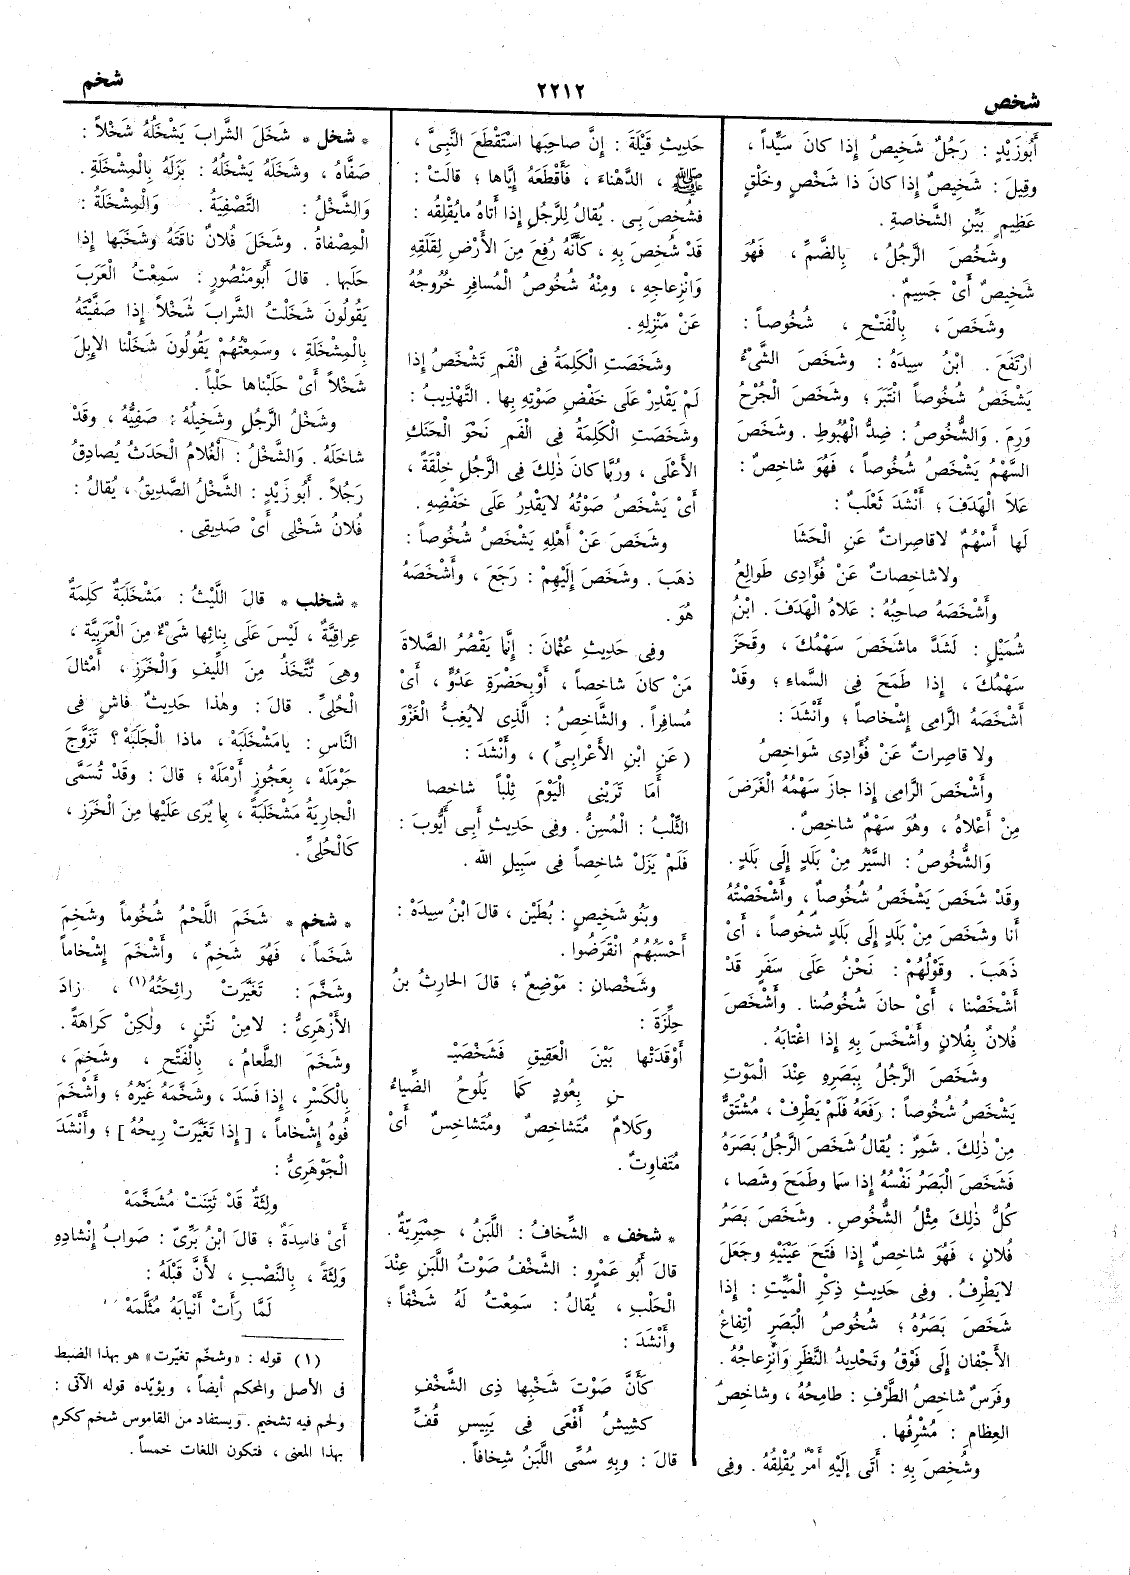 شخص
٢٢١٢
شخم
أَبُو زَيْدٍ : رَجُلٌ شَخِيصٌ إِذا كانَ سَيِّداً ،
وقِيلَ : شَخِيصٌ إِذا كانَ ذا شَخْصٍ وخَلْقٍ
عَظِيمٍ بَيِّنِ الشَّخاصةِ .
وشَخُصَ الرَّجُلُ ، بِالضَّمِّ ، فَهُوَ
شَخِيصٌ أَىْ جَسِيمٌ .
وشَخَصَ ، بِالْفَتْحِ ، شُخُوصاً :
ارْتَفَعَ . ابْنُ سِيدَهْ : وشَخَصَ الشَّىْءُ
يَشْخَصُ شُخُوصاً انْتَبَرَ ؛ وشَخَصَ الْجُرْحُ
وَرِمَ . وَالشُّخُوصُ : ضِدُّ الْهُبُوطِ . وشَخَصَ
السَّهْمُ يَشْخَصُ شُخُوصاً ، فَهُوَ شاخِصٌ :
عَلاَ الْهَدَفَ ؛ أَنْشَدَ ثَعْلَبٌ :
لَها أَسْهُمٌ لاقاصِراتٌ عَنِ الْحَشَا
ولاشاخِصاتٌ عَنْ فُؤَادِى طَوالِعُ
وأَشْخَصَهُ صاحِبُهُ : عَلاهُ الْهَدَفَ . ابْنُ
شُمَيْلٍ : لَشَدَّ ماشَخَصَ سَهْمُكَ ، وقَحَزَ
سَهْمُكَ ، إِذا طَمَحَ فِى السَّماءِ ؛ وقَدْ
أَشْخَصَهُ الرَّامِى إِشْخاصاً ؛ وأَنْشَدَ :
ولا قاصِراتٌ عَنْ فُؤادِى شَواخِصُ
وأَشْخَصَ الرَّامِى إِذا جازَ سَهْمُهُ الْغَرَضَ
مِنْ أَعْلاهُ ، وهُوَ سَهْمٌ شاخِصٌ .
وَالشُّخُوصُ : السَّيْرُ مِنْ بَلَدٍ إِلَى بَلَدٍ .
وقَدْ شَخَصَ يَشْخَصُ شُخُوصاً ، وأَشْخَصْتُهُ
أَنا وشَخَصَ مِنْ بَلَدٍ إِلَى بَلَدٍ شُخُوصاً ، أَىْ
ذَهَبَ . وقَوْلُهُمْ : نَحْنُ عَلَى سَفَرٍ قَدْ
أَشْخَصْنا ، أَىْ حانَ شُخُوصُنا . وأَشْخَصَ
فُلانٌ بِفُلانٍ وأَشْخَسَ بِهِ إِذا اغْتابَهُ .
وشَخَصَ الرَّجُلُ بِبَصَرِهِ عِنْدَ الْمَوْتِ
يَشْخَصُ شُخُوصاً : رَفَعَهُ فَلَمْ يَطْرِفْ ، مُشْتَقٌّ
مِنْ ذٰلِكَ . شَمِرٌ : يُقالُ شَخَصَ الرَّجُلُ بَصَرَهُ
فَشَخَصَ الْبَصَرُ نَفْسُهُ إِذا سَما وطَمَحَ وشَصا ،
كُلُّ ذٰلِكَ مِثْلُ الشُّخُوصِ . وشَخَصَ بَصَرُ
فُلانٍ ، فَهُوَ شاخِصٌ إِذا فَتَحَ عَيْنَيْهِ وجَعَلَ
لايَطْرِفُ . وفِى حَدِيثِ ذِكْرِ الْمَيِّتِ : إِذا
شَخَصَ بَصَرُهُ ؛ شُخُوصُ الْبَصَرِ ارْتِفاعُ
الأَجْفانِ إِلَى فَوْقُ وتَحْدِيدُ النَّظَرِ وَانْزِعاجُهُ .
وفَرَسٌ شاخِصُ الطَّرْفِ : طامِحُهُ ، وشاخِصُ
العِظامِ : مُشْرِفُها .
وشُخِصَ بِهِ : أَتَى إِلَيْهِ أَمْرٌ يُقْلِقُهُ . وفِى
حَدِيثِ قَيْلَةَ : إِنَّ صاحِبَها اسْتَقْطَعَ النَّبِىَّ ،
ﷺ ، الدَّهْناءَ ، فَأَقْطَعَهُ إِيَّاها ؛ قالَتْ :
فشُخِصَ بِى . يُقالُ لِلرَّجُلِ إِذا أَتاهُ مايُقْلِقُه :
قَدْ شُخِصَ بِهِ ، كأَنَّهُ رُفِعَ مِنَ الأَرْضِ لِقَلَقِهِ
وَانْزِعاجِهِ ، ومِنْهُ شُخُوصُ الْمُسافِرِ خُرُوجُهُ
عَنْ مَنْزِلِهِ .
وشَخَصَتِ الْكَلِمَةُ فِى الْفَمِ تَشْخَصُ إِذا
لَمْ يَقْدِرْ عَلَى خَفْضِ صَوْتِهِ بِها . التَّهْذِيبُ :
وشَخَصَتِ الْكَلِمَةُ فِى الْفَمِ نَحْوَ الْحَنَكِ
الأَعْلَى ، ورُبَّما كانَ ذٰلِكَ فِى الرَّجُلِ خِلْقَةً ،
أَىْ يَشْخَصُ صَوْتُهُ لايَقْدِرُ عَلَى خَفْضِهِ .
وشَخَصَ عَنْ أَهْلِهِ يَشْخَصُ شُخُوصاً :
ذهَبَ . وشَخَصَ إِلَيْهِمْ : رَجَعَ ، وأَشْخَصَهُ
هُوَ .
وفِى حَدِيثِ عُثْمانَ : إِنَّما يَقْصُرُ الصَّلاةَ
مَنْ كانَ شاخِصاً ، أَوْبِحَضْرَةِ عَدُوٍّ ، أَىْ
مُسافِراً . والشَّاخِصُ : الَّذِى لايُغِبُّ الْغَزْوَ
( عَنِ ابْنِ الأَعْرابِىِّ ) ، وأَنْشَدَ :
أَمَا تَرَيْنِى الْيَوْمَ ثِلْباً شاخِصا
الثِّلْبُ : الْمُسِنُّ . وفِى حَدِيثِ أَبِى أَيُّوبَ :
فَلَمْ يَزَلْ شاخِصاً فِى سَبِيلِ اللّٰهِ .
وبَنُو شَخِيصٍ : بُطَيْن ، قالَ ابْنُ سِيدَهْ :
أَحْسَبُهُمُ انْقَرَضُوا .
وشَخْصانِ : مَوْضِعٌ ؛ قالَ الحَارِثُ بنُ
حِلِّزَةَ :
أَوْقَدَتْها بَيْنَ الْعَقِيقِ فَشَخْصَيْـ
ـنِ بِعُودٍ كَما يَلُوحُ الضِّياءُ
وكَلامٌ مُتَشاخِصٌ ومُتَشاخِسٌ أَىْ
مُتَفاوِتٌ .
* شخف * الشِّخافُ : اللَّبَنُ ، حِمْيَرِيّةٌ .
قالَ أَبُو عَمْرٍو : الشَّخْفُ صَوْتُ اللَّبَنِ عِنْدَ
الْحَلْبِ ، يُقالُ : سَمِعْتُ لَهُ شَخْفاً ؛
وأَنْشَدَ :
كأَنَّ صَوْتَ شَخْبِها ذِى الشَّخْفِ
كَشِيشُ أَفْعَى فِى يَبِيسِ قُفِّ
قالَ : وبِهِ سُمِّىَ اللَّبَنُ شِخافاً .
* شخل * شَخَلَ الشَّرابَ يَشْخَلُهُ شَخْلاً :
صَفَّاهُ ، وشَخَلَهُ يَشْخَلُهُ : بَزَلَهُ بِالْمِشْخَلَةِ .
وَالشَّخْلُ : التَّصْفِيَةُ . وَالْمِشْخَلَةُ :
الْمِصْفاةُ . وشَخَلَ فُلانٌ ناقَتَهُ وشَخَبَها إِذا
حَلَبَها . قالَ أَبُومَنْصُورٍ : سَمِعْتُ الْعَرَبَ
يَقُولُونَ شَخَلْتُ الشَّرابَ شَخْلاً إِذا صَفَّيْتَهُ
بِالْمِشْخَلَةِ ، وسَمِعْتُهُمْ يَقُولُونَ شَخَلْنا الإِبِلَ
شَخْلاً أَىْ حَلَبْناها حَلْباً .
وشَخْلُ الرَّجُلِ وشَخِيلُهُ : صَفِيُّهُ ، وقَدْ
شاخَلَهُ . وَالشَّخْلُ : الْغُلامُ الْحَدَثُ يُصادِقُ
رَجُلاً . أَبُو زَيْدٍ : الشَّخْلُ الصَّدِيقُ ، يُقالُ :
فُلانٌ شَخْلِى أَىْ صَدِيقِى .
* شخلب * قالَ اللَّيْثُ : مَشْخَلَبَةٌ كَلِمَةٌ
عِراقِيَّةٌ ، لَيْسَ عَلَى بِنائِها شَىْءٌ مِنَ الْعَرَبِيَّةِ ،
وهِىَ تُتَّخَذُ مِنَ اللِّيفِ وَالْخَرَزِ ، أَمْثالَ
الْحُلِىِّ . قالَ : وهٰذا حَدِيثٌ فاشٍ فِى
النَّاسِ : يامَشْخَلَبَهْ ، ماذا الْجَلَبَهْ ؟ تَزَوَّجَ
حَرْمَلَهْ ، بِعَجُوزٍ أَرْمَلَهْ ؛ قالَ : وقَدْ تُسَمَّى
الْجارِيَةُ مَشْخَلَبَةً ، بِما يُرَى عَلَيْها مِنَ الْخَرَزِ ،
كَالْحُلِىِّ .
* شخم * شَخَمَ اللَّحْمُ شُخُوماً وشَخِمَ
شَخَماً ، فَهُوَ شَخِمٌ ، وأَشْخَمَ إِشْخاماً
وشَخَّمَ : تَغَيَّرَتْ رائِحَتُهُ(١) ، زادَ
الأَزْهَرِىُّ : لامِنْ نَتْنٍ ، ولٰكِنْ كَراهَةً .
وشَخَمَ الطَّعامُ ، بِالْفَتْحِ ، وشَخِمَ ،
بِالْكَسْرِ ، إِذا فَسَدَ ، وشَخَّمَهُ غَيْرُهُ ؛ وأَشْخَمَ
فُوهُ إِشْخاماً ، [ إِذا تَغَيَّرَتْ رِيحُهُ ] ؛ وأَنْشَدَ
الْجَوْهَرِىُّ :
ولِثَةٌ قَدْ ثَتِنَتْ مُشَخَّمَهْ
أَىْ فاسِدَةٌ ؛ قالَ ابْنُ بَرِّىّ : صَوابُ إِنْشادِهِ
وَلِثَةً ، بِالنَّصْبِ ، لأَنَّ قَبْلَهُ :
لَمَّا رَأَتْ أَنْيابَهُ مُثَلَّمَهْ
(١) قوله : «وشخّم تغيّرت» هو بهذا الضبط
فى الأصل والمحكم أيضاً ، ويؤيّده قوله الآتى :
ولحم فيه تشخيم . ويستفاد من القاموس شخم ككرم
بهذا المعنى ، فتكون اللغات خمساً .